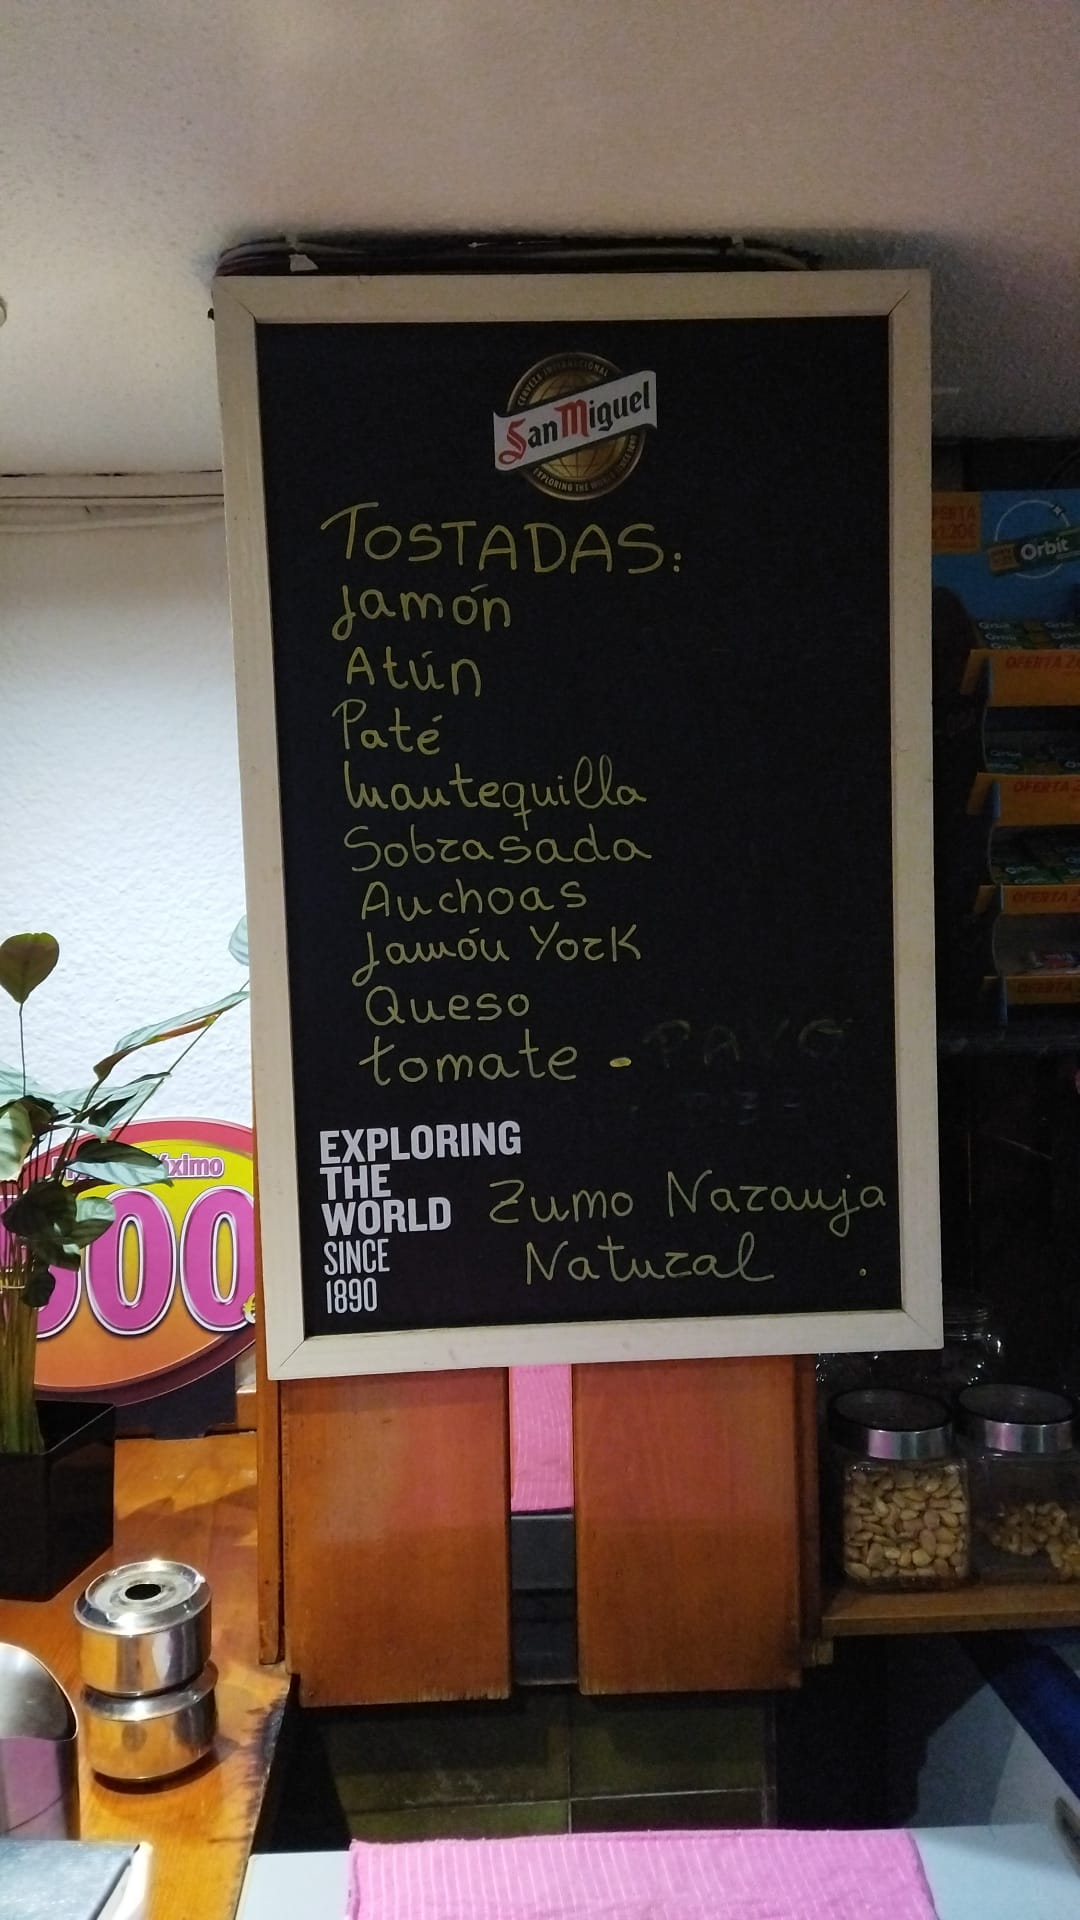 CERVEZA INTERNACIONAL
San Miguel
EXPLORING THE WORLD SINCE 1890
TOSTADAS:
Jamón
Atún
Paté
Mantequilla
Sobrasada
Anchoas
Jamón York
Queso
tomate - PAVO
EXPLORING
THE
WORLD
SINCE
1890
Zumo Naranja
Natural .
Orbit
OFERTA
OFERTA
OFERTA
OFERTA